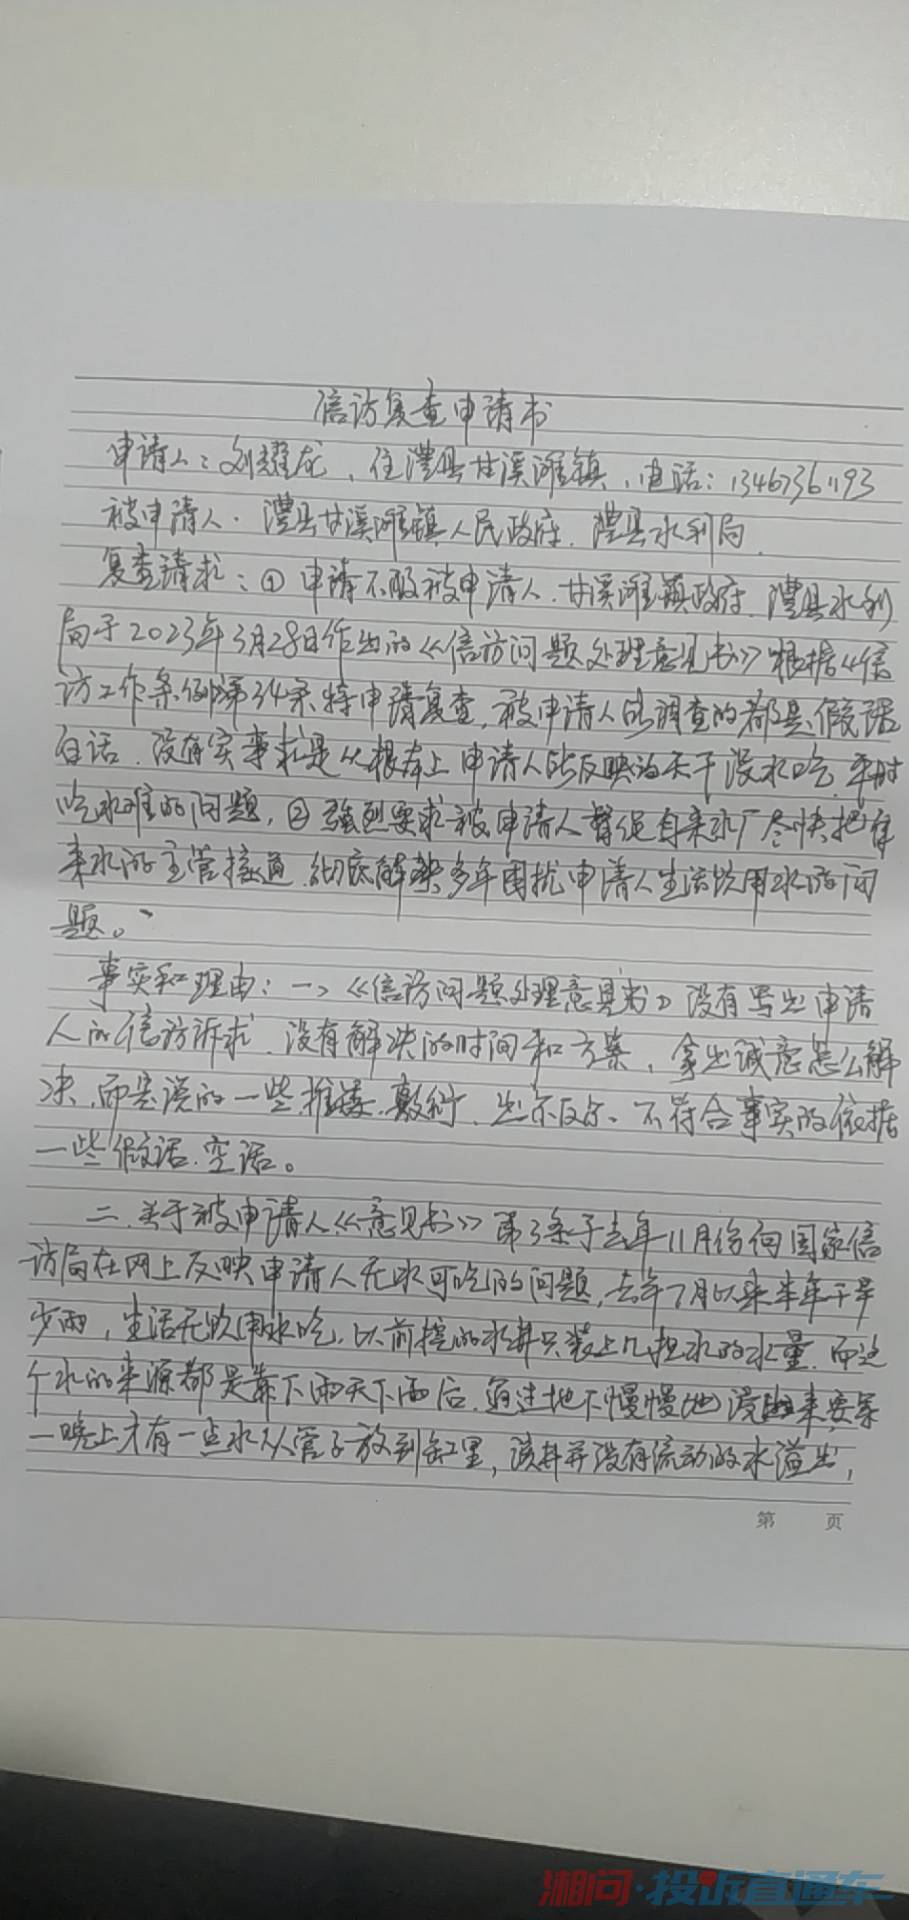 信访复查申请书
申请人：刘耀龙、住澧县甘溪滩镇，电话：13467361193
被申请人.澧县甘溪滩镇人民政府.澧县水利局.
复查请求：①申请不服被申请人.甘溪滩镇政府.澧县水利
局于2023年3月28日作出的《信访问题处理意见书》根据《信
访工作条例》第34条特申请复查，被申请人所调查的都是假话
白话.没有实事求是从根本上申请人所反映的天干没水吃.平时
吃水难的问题，②强烈要求被申请人督促自来水厂尽快把自
来水的主管接通.彻底解决多年困扰申请人生活饮用水的问
题。
事实和理由：一、《信访问题处理意见书》没有写出申请
人的信访诉求.没有解决的时间和方案，拿出诚意怎么解
决.而是说的一些推诿.敷衍.出尔反尔、不符合事实的依据
一些假话.空话。
二.关于被申请人《意见书》第3条于去年11月份向国家信
访局在网上反映申请人无水可吃的问题，去年7月以来半年干旱
少雨，生活无饮用水吃.以前挖的水井只装上几担水的水量.而这
个水的来源都是靠下雨天下雨后.通过地下慢慢地浸出来要等
一晚上才有一点水从管子放到缸里，该井并没有流动的水溢出，
第 页
湘问·投诉直通车